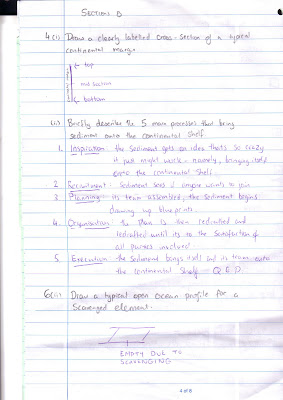 SECTION B
4(i) Draw a clearly labelled cross-section of a typical
continental margin
top
mid section
bottom
(ii) Briefly describe the 5 main processes that bring
sediment onto the continental shelf.
1. Inspiration: the sediment gets an idea that's so crazy
it just might work - namely, bringing itself
onto the continental shelf.
2. Recruitment: Sediment sees if anyone wants to join
3. Planning: its team assembled, the sediment begins
drawing up blueprints
4. Organisation: The plan is then redrafted and
redrafted until its to the satisfaction of
all parties involved
5. Execution - the sediment brings itself and its team onto
the continental shelf - Q.E.D.
6(ii) Draw a typical open ocean profile for a
Scavenged element.
EMPTY DUE TO
SCAVENGING